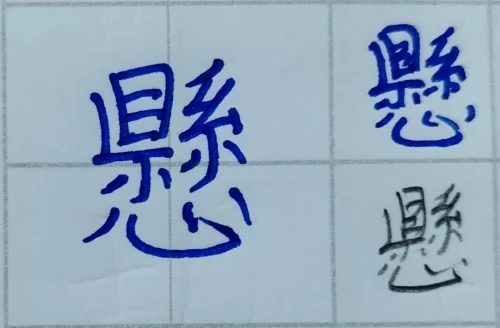 懸
懸
懸